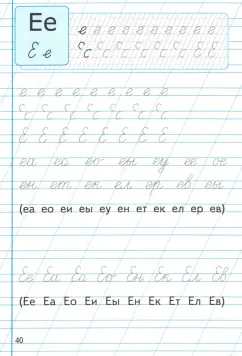 Ее
е е е е е е е е е е
Е е
е е е е е е е е е
Е Е Е Е Е Е Е Е
еа ео ео еы еу ее ое
ен ет ек ел ер ев еы
(еа ео еи еы еу ен ет ек ел ер ев)
Ее Еа Ео Ен Ек Ел Ев
(Ее Еа Ео Еи Еы Ен Ек Ет Ел Ев)
40